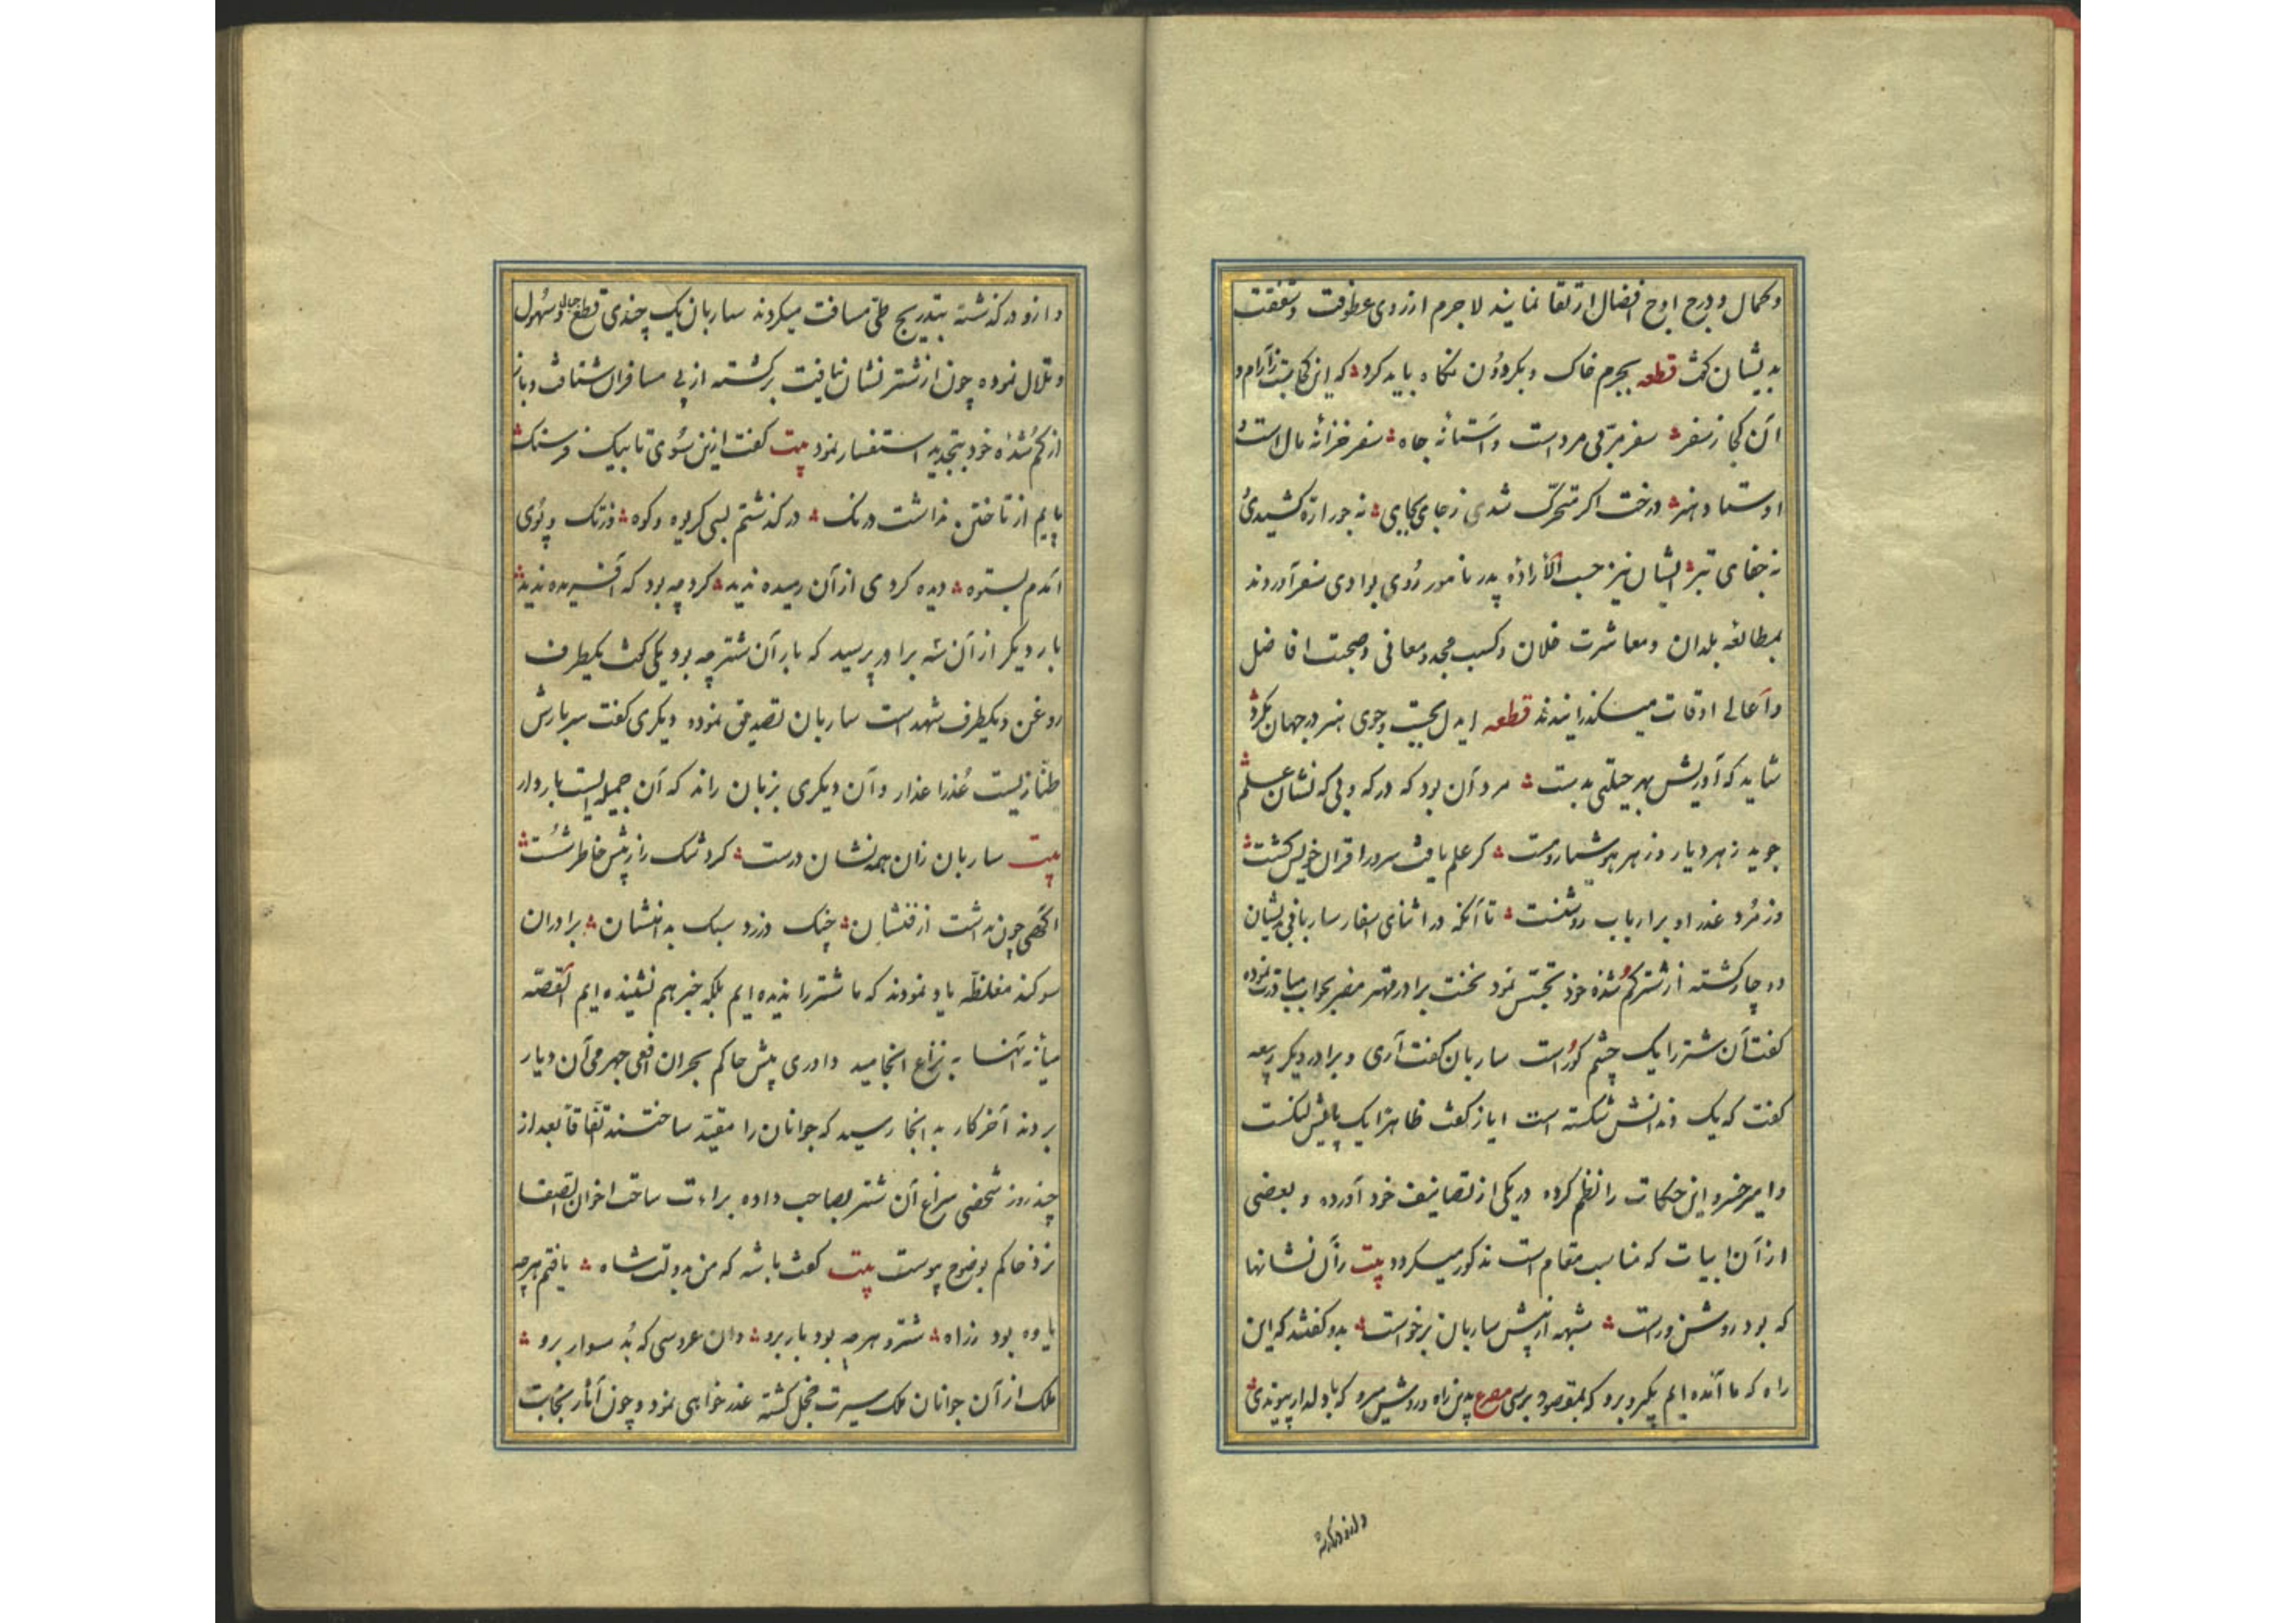 وکمال و درج اوج افضال ارتقا نمایند لاجرم از روی عطوفت و شفقت
بدیشان گفت قطعه بجرم خاک و بگردون نگاه باید کرد که این کجاست ز آرام و
آن کجا ز سفر سفر مربی مرد است و آستانه جاه سفر خزانه مال است و
اوستاد هنر درخت اگر متحرک شدی ز جای بجای نه جور اره کشیدی
نه جفای تبر ایشان نیز حسب الاراده پدر نامور روی بوادی سفر آوردند
بمطالعه بلدان و معاشرت خلان وکسب مجد و معافی وصحبت افاضل
واعالی اوقات میگذرانیدند قطعه ایدل بجست وجوی هنر در جهان بگرد
شاید که آوریش بهر حیلتی بدست مرد آن بود که در که و بی که نشان علم
جوید ز هر دیار وز هر هوشیار ومست گر علم یافت سرور اقران خویش گشت
وز مرد عذر او بر ارباب روشنست تا آنکه در اثنای اسفار ساربانی بدیشان
دوچار گشته از شتر گم شده خود تجسس نمود نخست برادر مهتر مضر بجواب مبادرت نموده
گفت آن شتر را یک چشم کور است ساربان گفت آری و برادر دیگر ربیعه
گفت که یک دندانش شکسته است ایاز گفت ظاهرا یک پایش لنگست
وامیر خسرو این حکایت را نظم کرده در یکی از تصانیف خود آورده و بعضی
از آن ابیات که مناسب مقام است مذکور میگردد بیت زان نشانها
که بود روشن وراست شبهه از پیش ساربان برخواست بدو گفتند که این
راه که ما آمده ایم بگیر و برو که بمقصود برسی مصرع بدین راه و روش میرو که با دلدار پیوندی
وازو درگذشته
وازو درگذشته بتدریج طی مسافت میکردند ساربان یک چندی قطع جبال و سهول
وتلال نموده چون از شتر نشان نیافت برگشته از پی مسافران شتافت و باز
از گم شده خود بتجدید استفسار نمود بیت گفت ازین سوی تا بیک فرسنگ
پایم از تاختن نداشت درنگ درگذشتم بسی گریوه وکوه وز تگ وپوی
آمدم بستوه دیده گردی از آن رمیده ندید گرد چه بود که آفریده ندید
بار دیگر از آن سه برادر پرسید که بار آن شتر چه بود یکی گفت یکطرف
روغن ویکطرف شهد است ساربان تصدیق نموده دیگری گفت سربارش
طنازیست عذرا عذار وآن دیگری بزبان راند که آن جمیله ایست باردار
بیت ساربان زان همه نشان درست گرد شک را ز پیش خاطر شست
آگهی چون نداشت از فنشان چنگ در زد سبک بدامنشان برادران
سوگند مغلظه یاد نمودند که ما شتر را ندیده ایم بلکه خبر هم نشنیده ایم القصه
میانه آنها به نزاع انجامید داوری پیش حاکم بحران افعی جرهمی آن دیار
بردند آخر کار به انجا رسید که جوانان را مقید ساختند اتفاقا بعد از
چند روز شخصی سراغ آن شتر بصاحب داده براءت ساحت اخوان الصفا
نزد حاکم بوضوح پیوست بیت گفت باشه که من بدولت شاه یافتم هرچه
یاوه بود ز راه شتر و هرچه بود بار برو وان عروسی که بد سوار برو
ملک از آن جوانان ملک سیرت خجل گشته عذر خواهی نمود وچون آثار نجابت